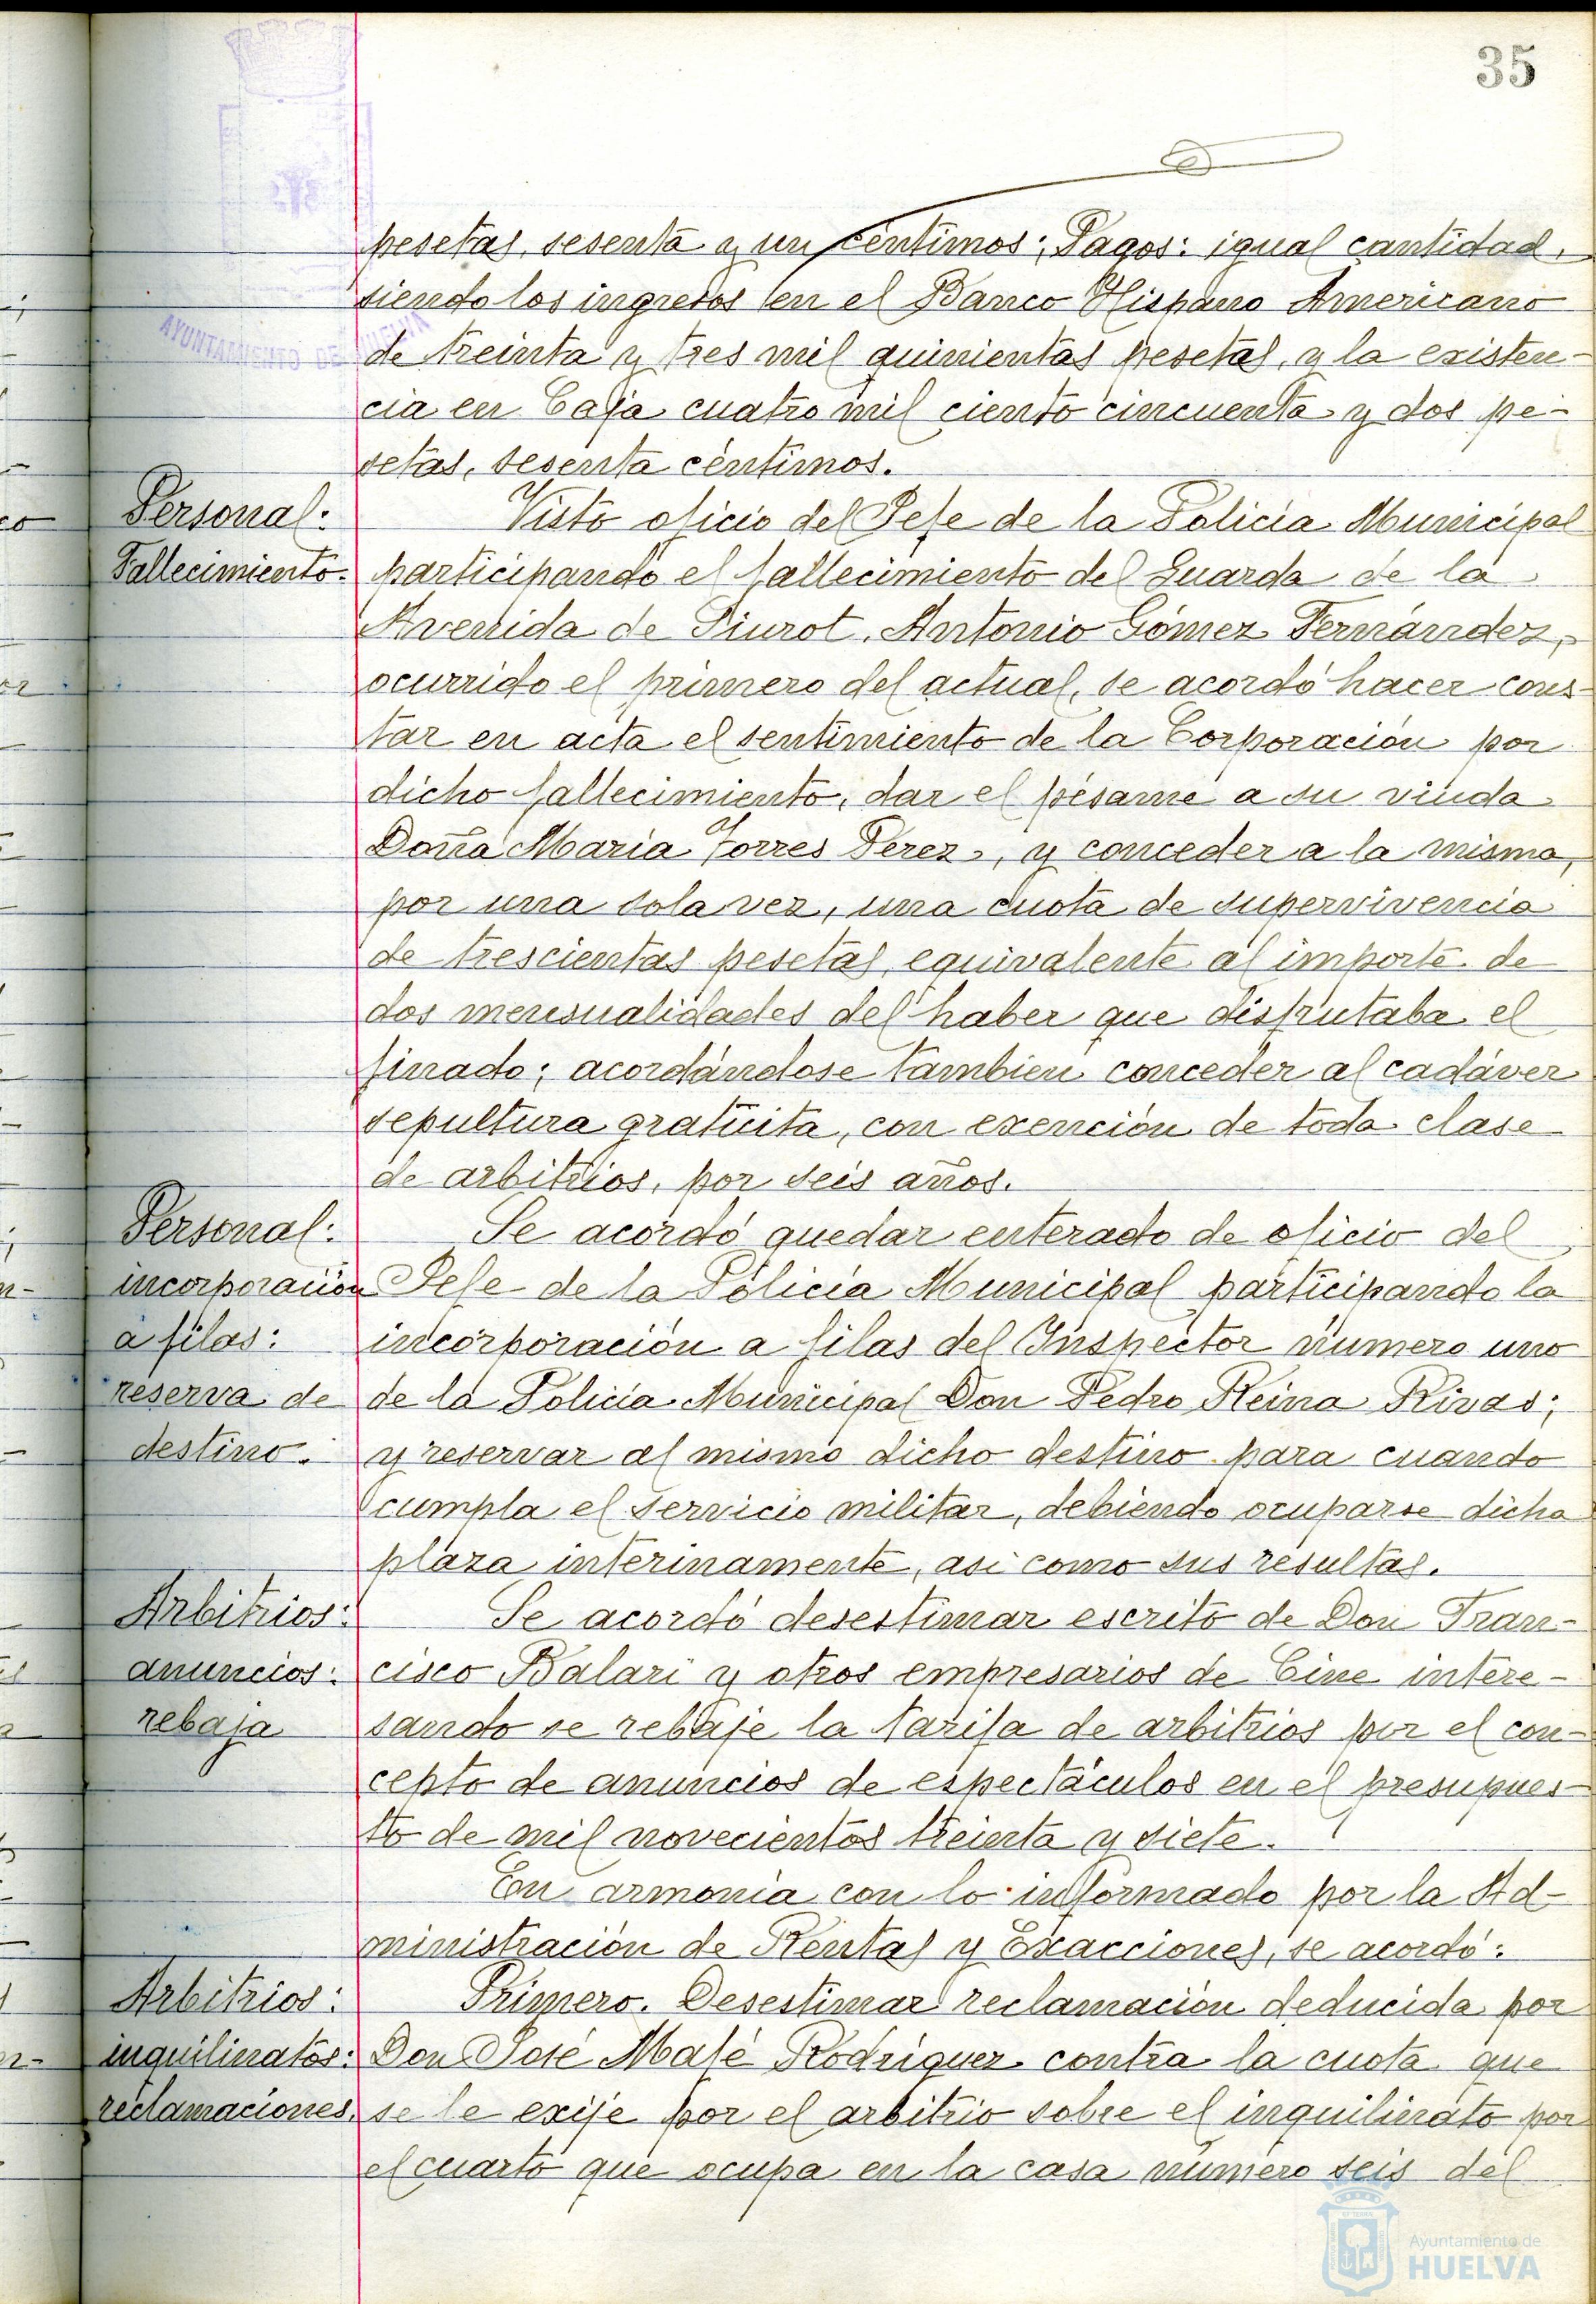 35
AYUNTAMIENTO DE HUELVA
pesetas, sesenta y un céntimos; Pagos: igual cantidad,
siendo los ingresos en el Banco Hispano Americano
de treinta y tres mil quinientas pesetas, y la existen-
cia en Caja cuatro mil ciento cincuenta y dos pe-
setas, sesenta céntimos.
Personal:
Fallecimiento.
Visto oficio del Jefe de la Policía Municipal
participando el fallecimiento del Guarda de la
Avenida de Siurot, Antonio Gómez Fernández,
ocurrido el primero del actual, se acordó hacer cons-
tar en acta el sentimiento de la Corporación por
dicho fallecimiento, dar el pésame a su viuda
Doña María Torres Pérez, y conceder a la misma,
por una sola vez, una cuota de supervivencia
de trescientas pesetas, equivalente al importe de
dos mensualidades del haber que disfrutaba el
finado; acordándose también conceder al cadáver
sepultura gratuita, con exención de toda clase
de arbitrios, por seis años.
Personal:
incorporación
a filas:
reserva de
destino.
Se acordó quedar enterado de oficio del
Jefe de la Policía Municipal participando la
incorporación a filas del Inspector número uno
de la Policía Municipal Don Pedro Reina Rivas;
y reservar al mismo dicho destino para cuando
cumpla el servicio militar, debiendo ocuparse dicha
plaza interinamente, así como sus resultas.
Arbitrios:
anuncios:
rebaja
Se acordó desestimar escrito de Don Fran-
cisco Balari y otros empresarios de Cine intere-
sando se rebaje la tarifa de arbitrios por el con-
cepto de anuncios de espectáculos en el presupues-
to de mil novecientos treinta y siete.
En armonía con lo informado por la Ad-
ministración de Rentas y Exacciones, se acordó:
Arbitrios:
inquilinatos:
reclamaciones.
Primero. Desestimar reclamación deducida por
Don José Malé Rodríguez contra la cuota que
se le exije por el arbitrio sobre el inquilinato por
el cuarto que ocupa en la casa número seis del
Ayuntamiento de
HUELVA